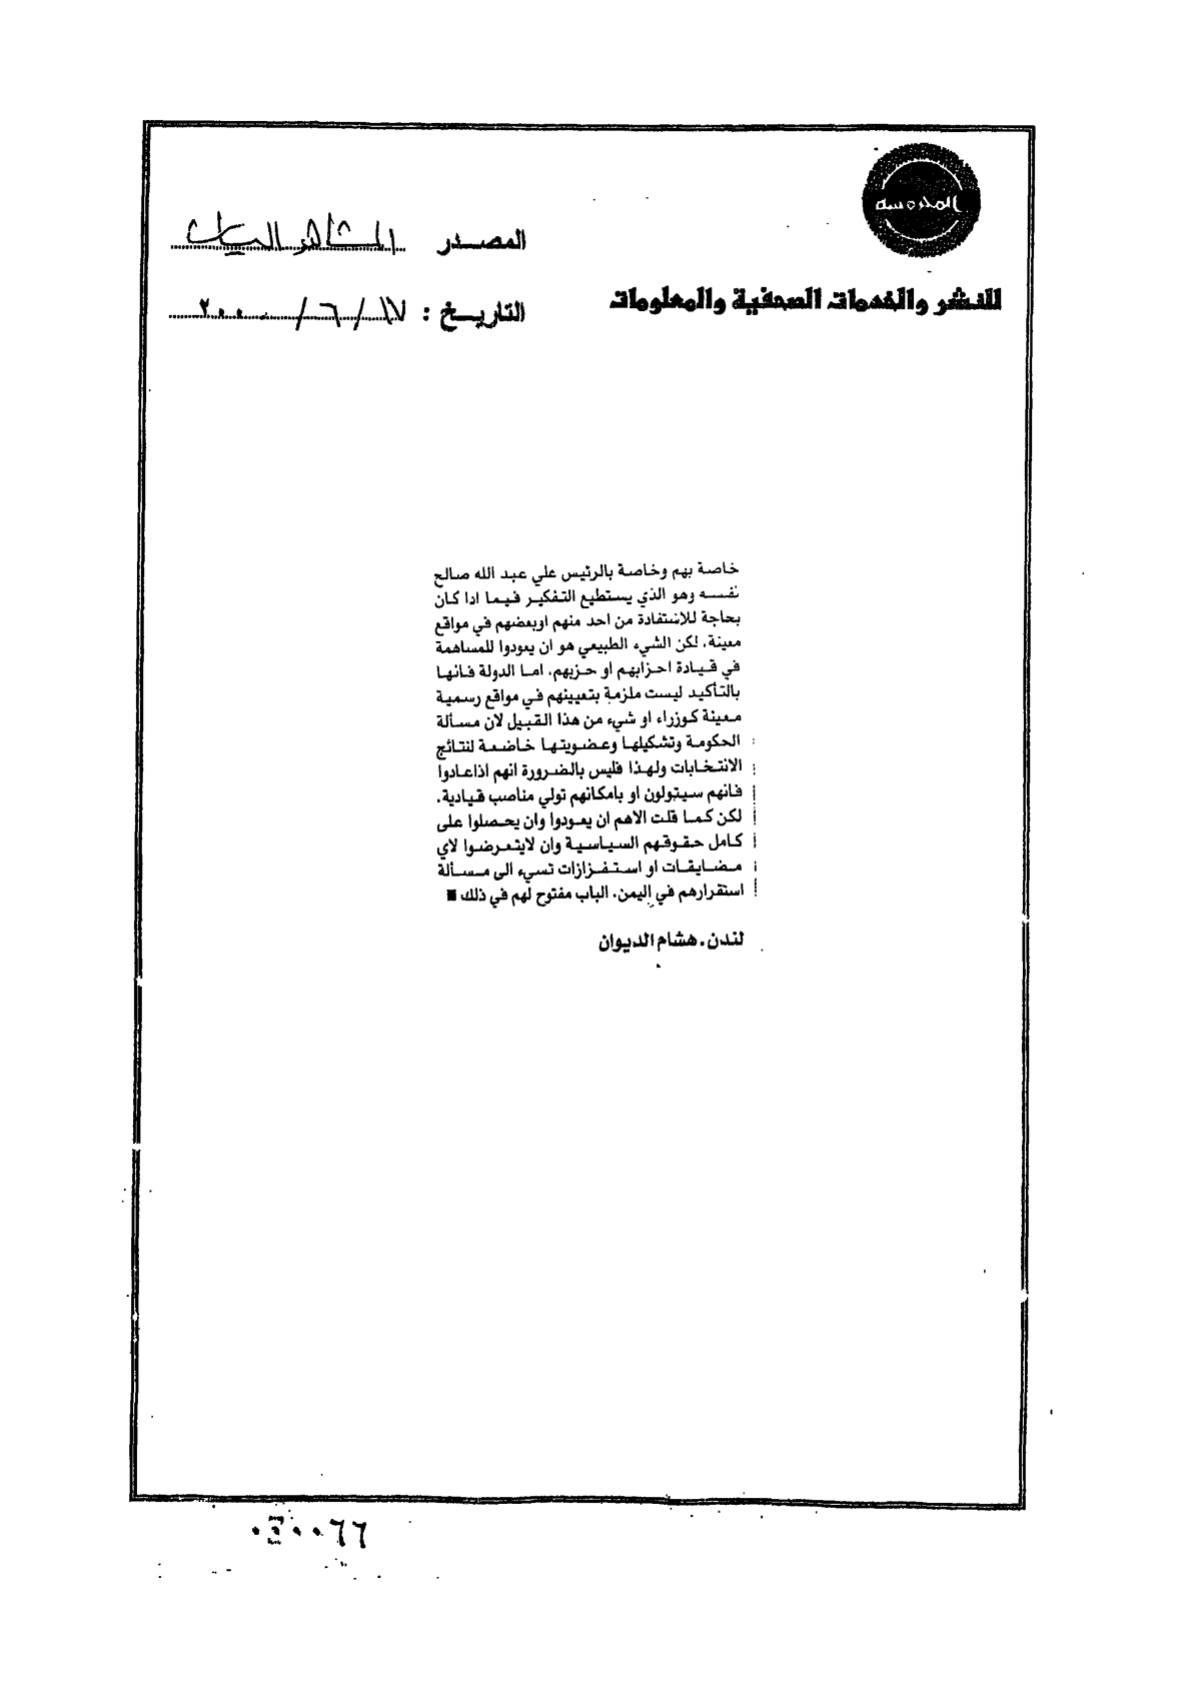 المحروسة
للنشر والخدمات الصحفية والمعلومات
المصدر المشاهد السياسي
التاريخ : ١٧ / ٦ / ٢٠٠٠
خاصة بهم وخاصة بالرئيس علي عبد الله صالح
نفسه وهو الذي يستطيع التفكير فيما اذا كان
بحاجة للاستفادة من احد منهم اوبعضهم في مواقع
معينة، لكن الشيء الطبيعي هو ان يعودوا للمساهمة
في قيادة احزابهم او حزبهم، اما الدولة فانها
بالتأكيد ليست ملزمة بتعيينهم في مواقع رسمية
معينة كوزراء او شيء من هذا القبيل لان مسألة
الحكومة وتشكيلها وعضويتها خاضعة لنتائج
الانتخابات ولهذا فليس بالضرورة انهم اذاعادوا
فانهم سيتولون او بامكانهم تولي مناصب قيادية.
لكن كما قلت الاهم ان يعودوا وان يحصلوا على
كامل حقوقهم السياسية وان لايتعرضوا لاي
مضايقات او استفزازات تسيء الى مسألة
استقرارهم في اليمن، الباب مفتوح لهم في ذلك ■
لندن. هشام الديوان